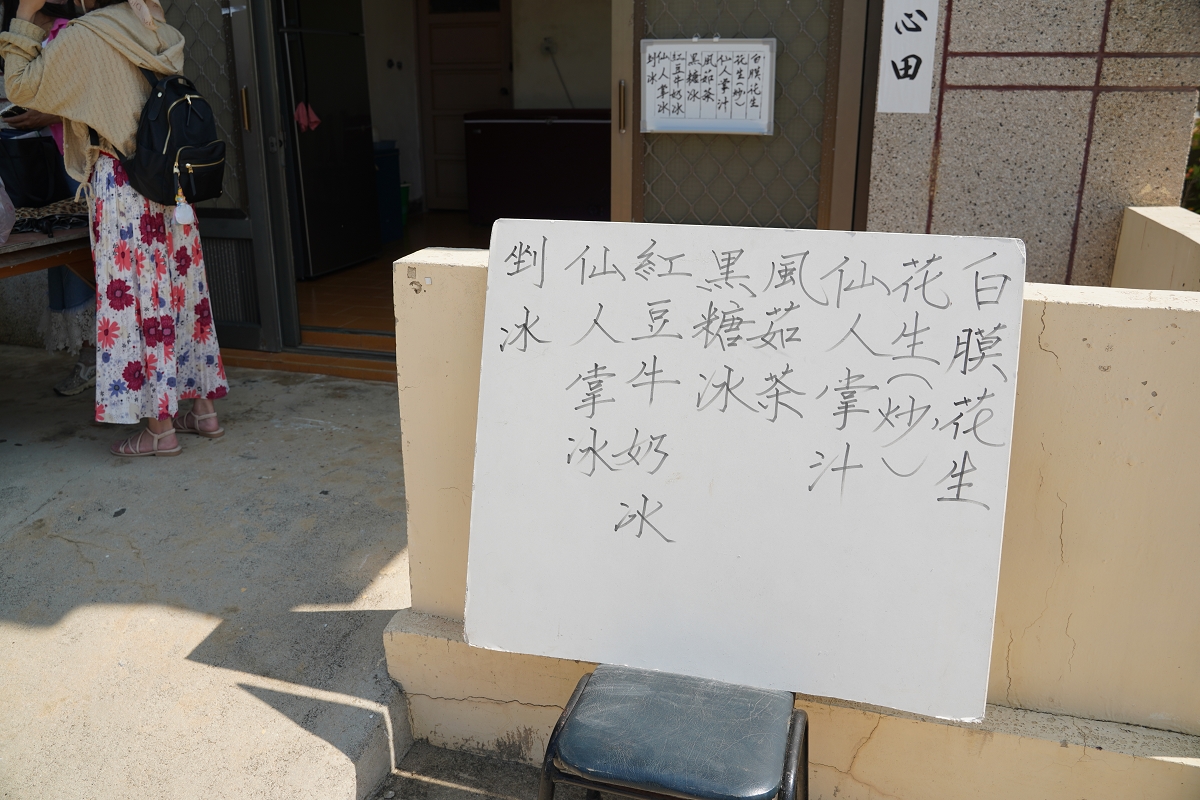 白膜花生
花生(炒)
仙人掌汁
風茹茶
黑糖冰
紅豆牛奶冰
仙人掌冰
剉冰
白膜花生
花生(炒)
仙人掌汁
風茹茶
黑糖冰
紅豆牛奶冰
仙人掌冰
剉冰
心田